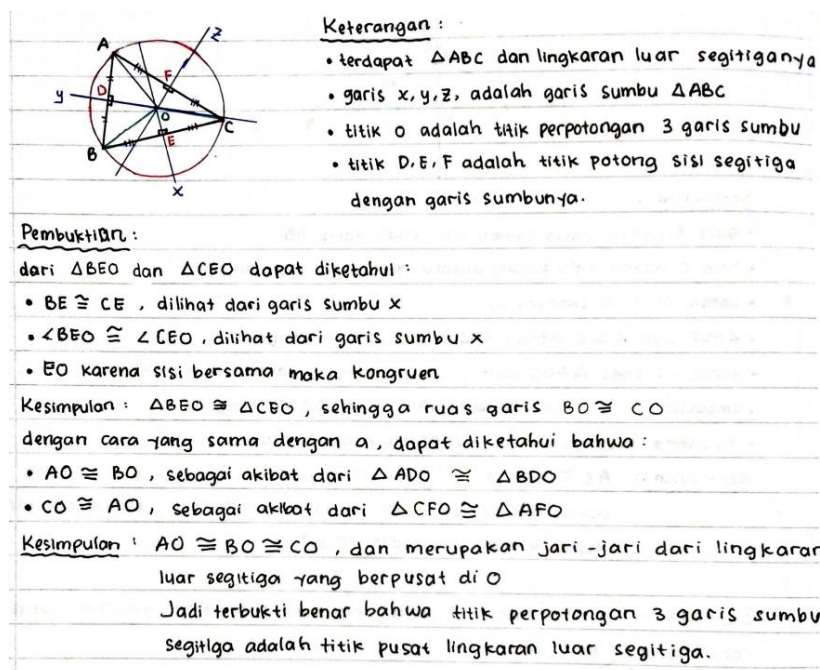 Keterangan :
• terdapat △ABC dan lingkaran luar segitiganya
• garis x, y, z, adalah garis sumbu △ABC
• titik O adalah titik perpotongan 3 garis sumbu
• titik D, E, F adalah titik potong sisi segitiga
dengan garis sumbunya.
A
z
F
D
y
O
C
B
E
x
Pembuktian :
dari △BEO dan △CEO dapat diketahui :
• BE ≅ CE , dilihat dari garis sumbu x
• ∠BEO ≅ ∠CEO , dilihat dari garis sumbu x
• EO karena sisi bersama maka kongruen
Kesimpulan : △BEO ≅ △CEO , sehingga ruas garis BO ≅ CO
dengan cara yang sama dengan a, dapat diketahui bahwa :
• AO ≅ BO , sebagai akibat dari △ADO ≅ △BDO
• CO ≅ AO , sebagai akibat dari △CFO ≅ △AFO
Kesimpulan : AO ≅ BO ≅ CO , dan merupakan jari-jari dari lingkaran
luar segitiga yang berpusat di O
Jadi terbukti benar bahwa titik perpotongan 3 garis sumbu
segitiga adalah titik pusat lingkaran luar segitiga.